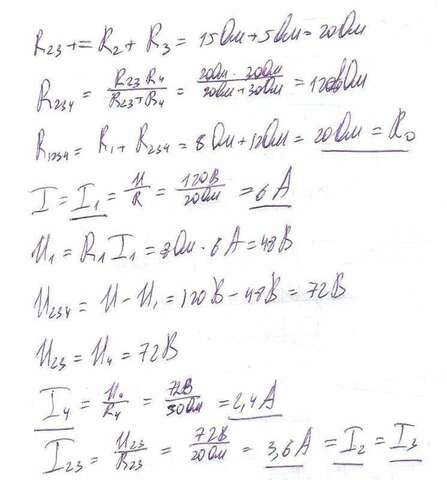 R₂₃ += R₂ + R₃ = 15 Ом + 5 Ом = 20 Ом
R₂₃₄ = R₂₃ R₄ / R₂₃ + R₄ = 20 Ом · 30 Ом / 20 Ом + 30 Ом = 12 Ом
R₁₂₃₄ = R₁ + R₂₃₄ = 8 Ом + 12 Ом = 20 Ом = R₀
I = I₁ = U / R = 120 В / 20 Ом = 6 А
U₁ = R₁ I₁ = 8 Ом · 6 А = 48 В
U₂₃₄ = U - U₁ = 120 В - 48 В = 72 В
U₂₃ = U₄ = 72 В
I₄ = U₄ / R₄ = 72 В / 30 Ом = 2,4 А
I₂₃ = U₂₃ / R₂₃ = 72 В / 20 Ом = 3,6 А = I₂ = I₃